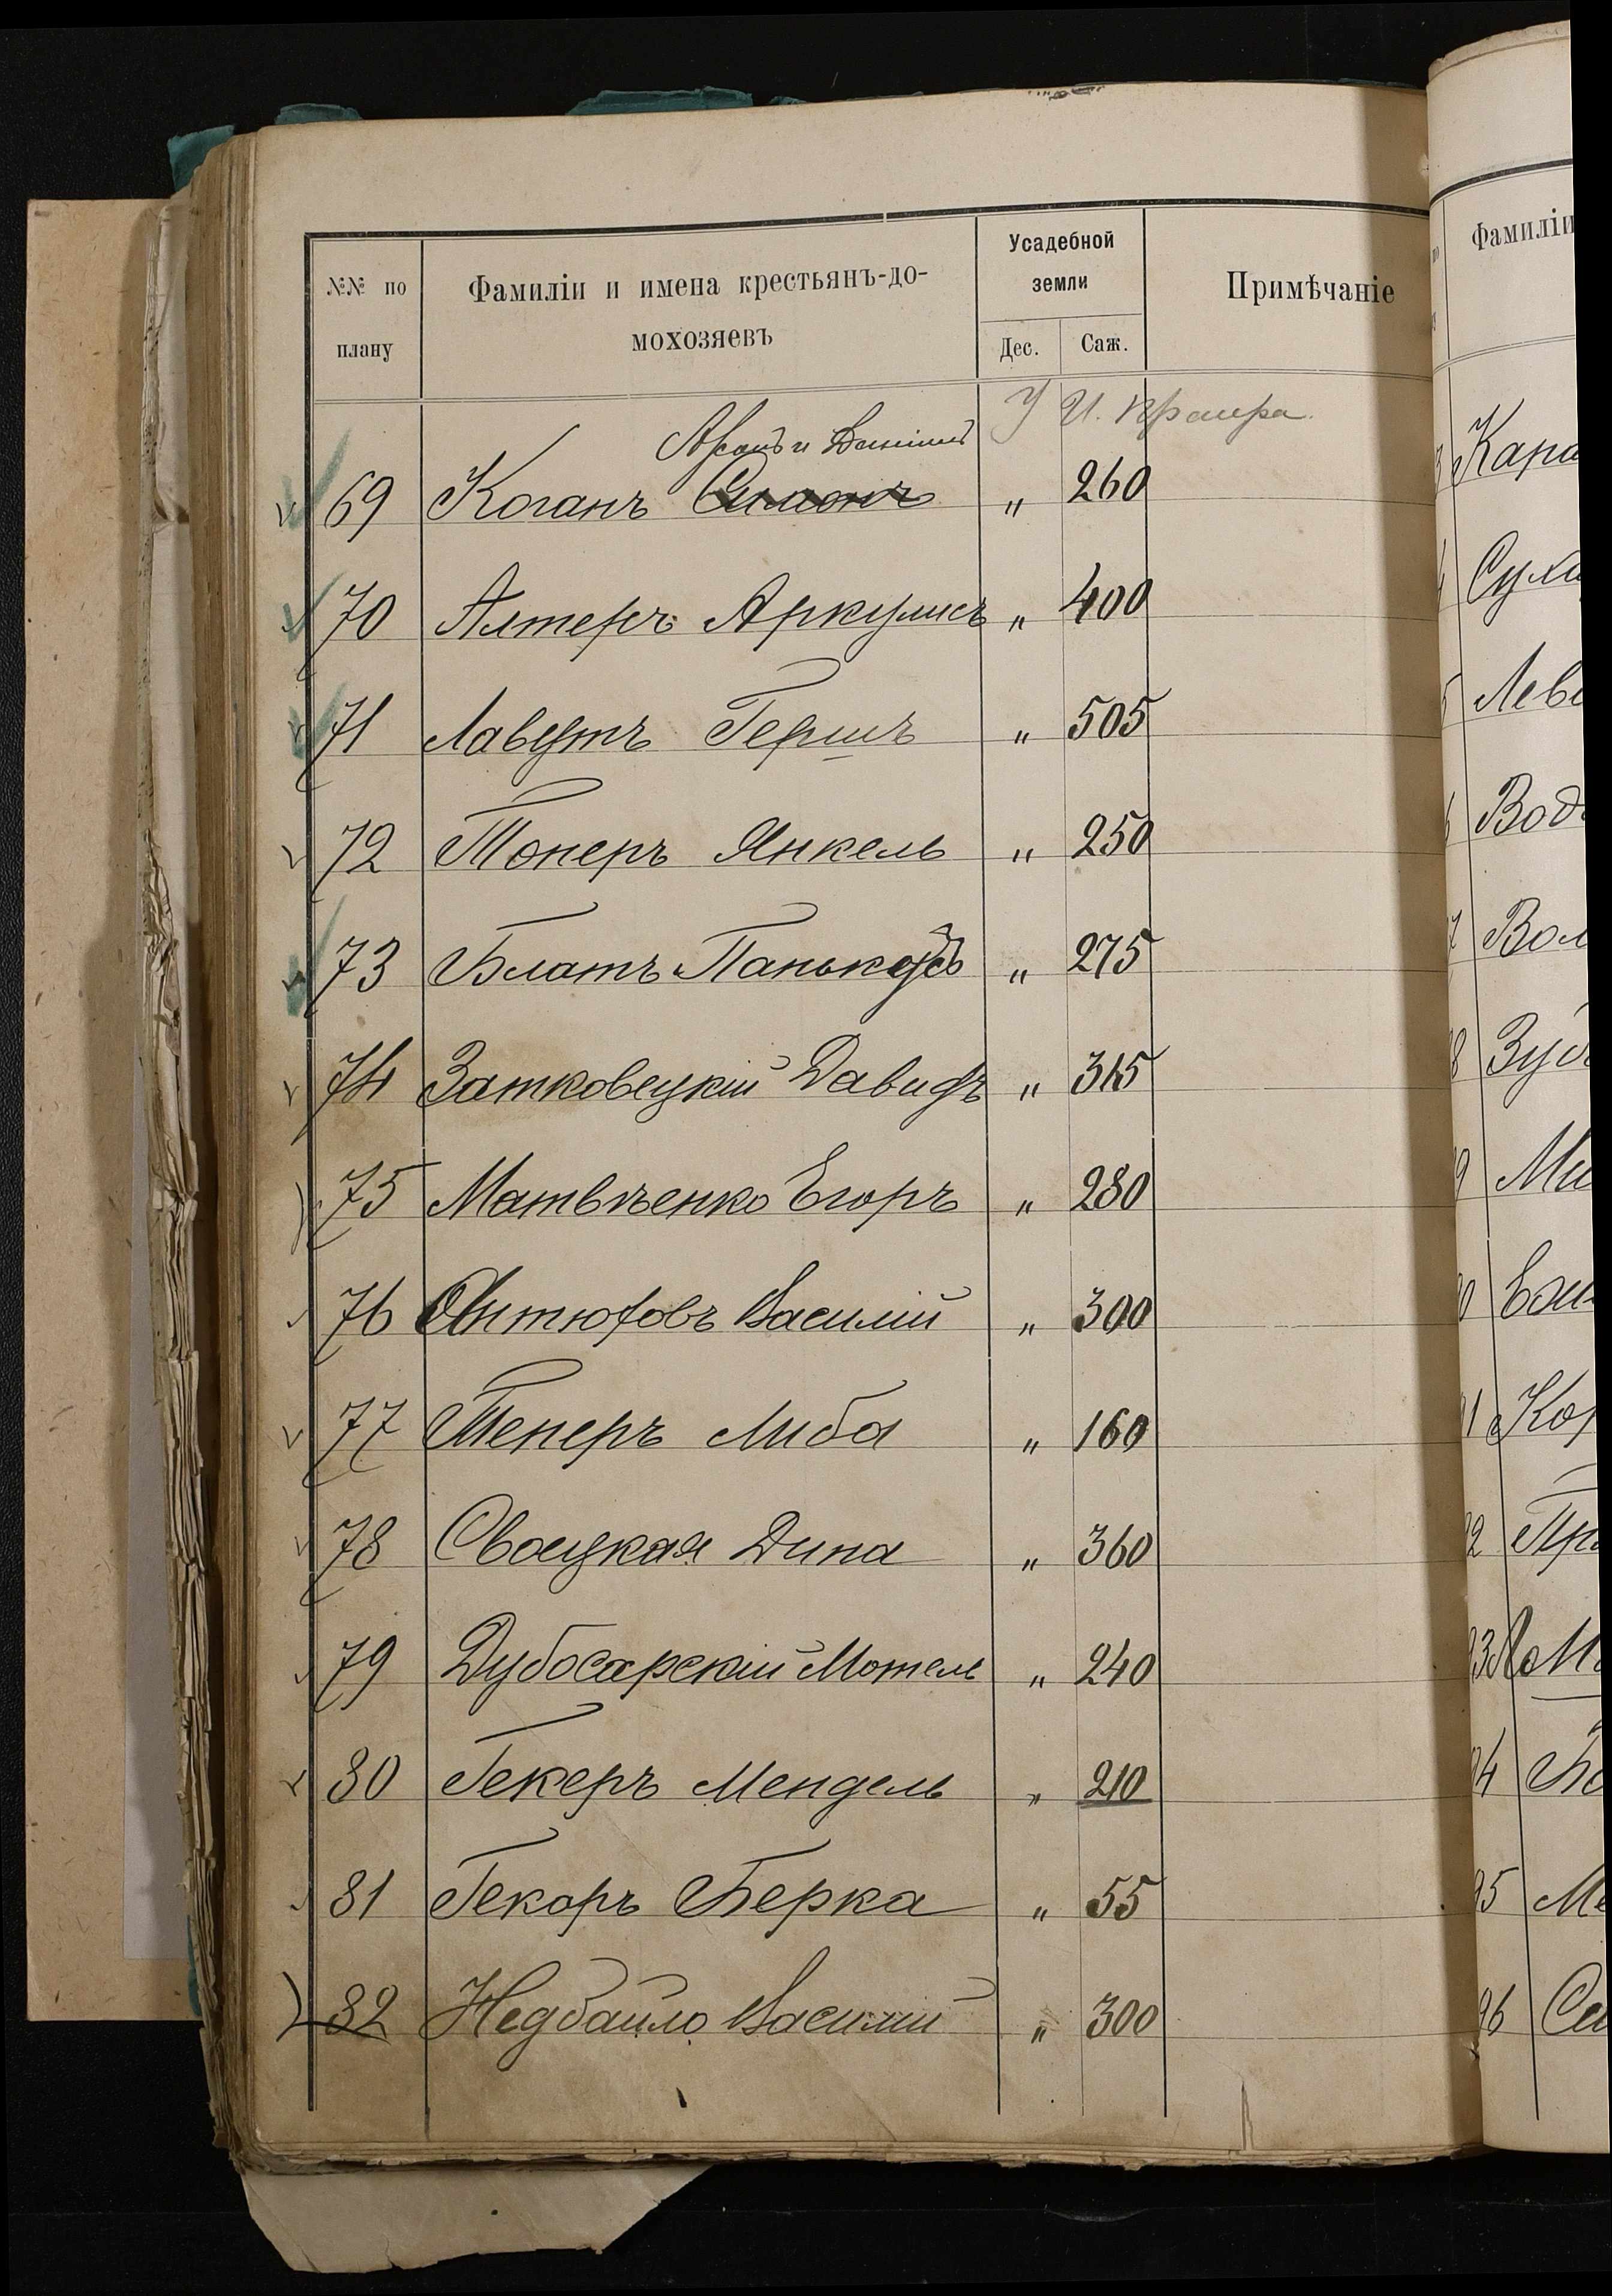 №№ по плану
Фамиліи и имена крестьянъ-до-
мохозяевъ
Усадебной
земли
Дес. Саж.
Примѣчаніе
У И.
Аронъ и
69 Коганъ Симонъ „ 260
70 Алтеръ Аркулисъ „ 400
71 Лавутъ Гершъ „ 505
72 Тонеръ Янкель „ 250
73 Блатъ Панькусъ „ 275
74 Затковецкій Давидъ „ 315
75 Матвѣенко Егоръ „ 280
76 Антюфовъ Василій „ 300
77 Тенеръ Либа „ 160
78 Своецкая Дина „ 360
79 Дубосарскій Мотель „ 240
80 Гекеръ Мендель „ 210
81 Гекеръ Берка „ 55
82 Недбайло Василій „ 300
Фамиліи
Кара
Сухи
Лев
Вод
Вол
Зуб
Ми
Кор
Пр
96